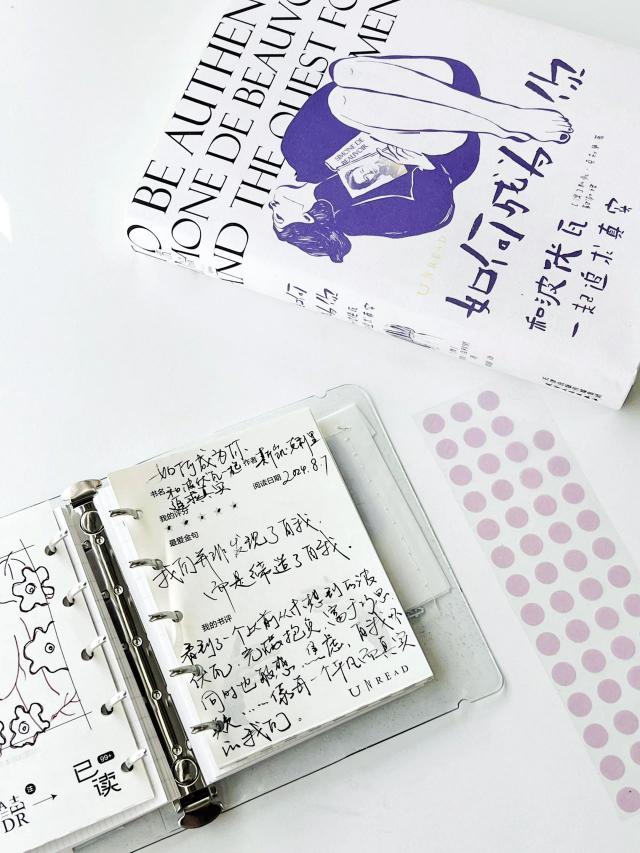 O BE AUTHEN
ONE DE BEAUVO
ND THE QUEST FO
MEN
SIMONE DE
BEAUVOIR
如何成为你
和波伏瓦
一起追求真实
UNREAD
如何
为你
书名 如何成为你
和波伏瓦一起
追求真实
作者 斯凯·克利里
阅读日期 2024.8.7
我的评分
最爱金句
我们并非发现了自我,
而是缔造了自我.
我的书评
看到了一个以前从未想到的波
伏瓦,充满把握、富于学识
同时也敏感……焦虑,自我怀
疑……像每一个平凡不真实
的我们.
UNREAD
99+
已读
DR